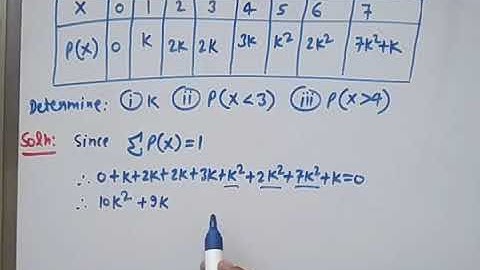 X 0 1 2 3 4 5 6 7
P(X) 0 K 2K 2K 3K K² 2K² 7K²+K
Determine: (i) K (ii) P(X<3) (iii) P(X>4)
Soln: Since ΣP(X)=1
∴ 0+K+2K+2K+3K+K²+2K²+7K²+K=0
∴ 10K²+9K